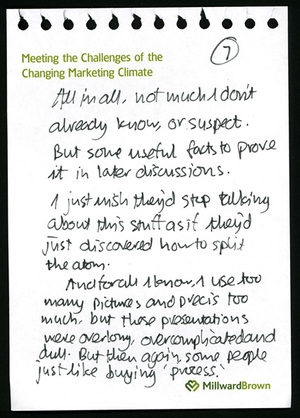 7
Meeting the Challenges of the
Changing Marketing Climate
All in all, not much I don't
already know, or suspect.
But some useful facts to prove
it in later discussions.
I just wish they'd stop talking
about this stuff as if they'd
just discovered how to split
the atom.
And for all I know, I use too
many pictures and precis too
much, but these presentations
were overlong, overcomplicated and
dull. But then again, some people
just like buying 'process.'
MillwardBrown